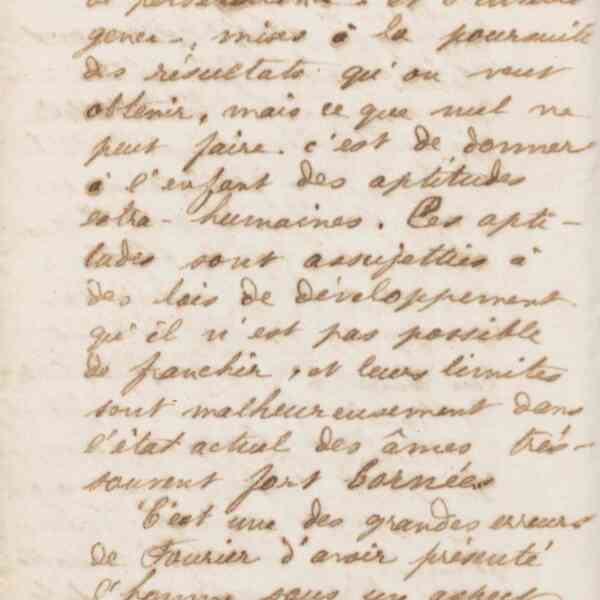 de persévérance et d'intelli-
gence, mises à la poursuite
des résultats qu'on veut
obtenir, mais ce que nul ne
peut faire. c'est de donner
à l'enfant des aptitudes
extra-humaines. Ces apti-
tudes sont assujetties à
des lois de développement
qu'il n'est pas possible
de franchir, et leurs limites
sont malheureusement dans
l'état actuel des âmes très-
souvent fort bornées
C'est une des grandes erreurs
de Fourier d'avoir présenté
l'homme sous un aspect